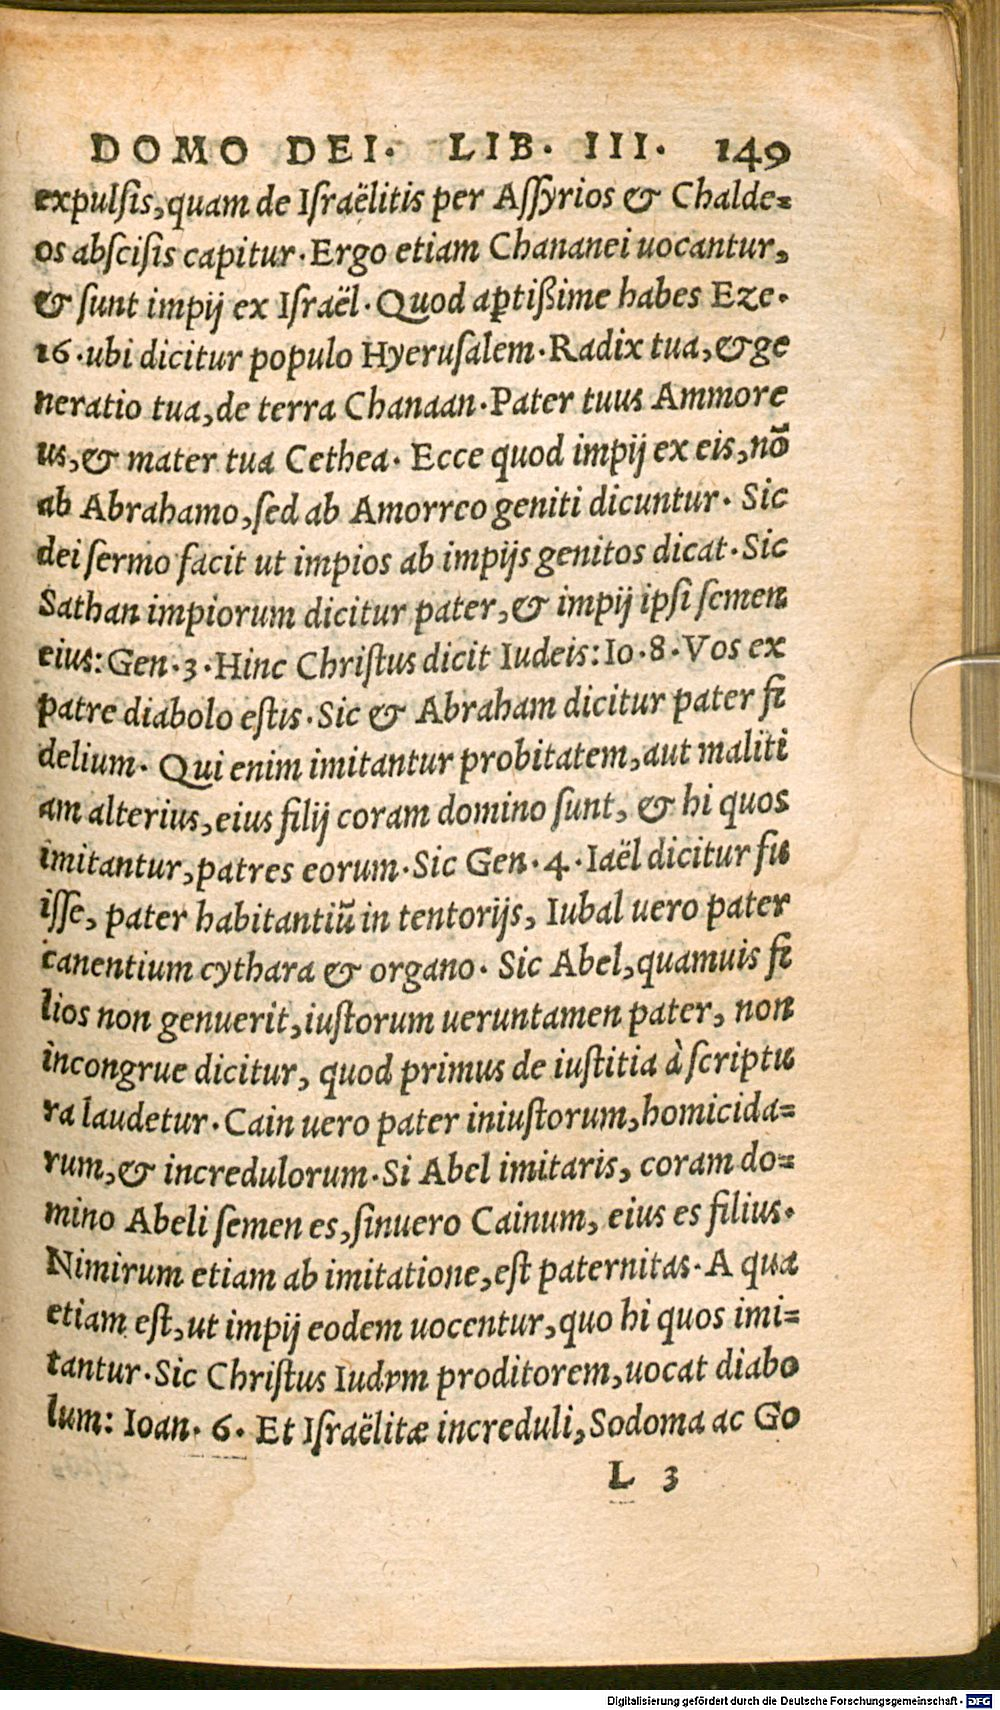 DOMO DEI. LIB. III. 149
expulſis, quam de Iſraëlitis per Aſſyrios & Chalde=
os abſciſis capitur. Ergo etiam Chananei uocantur,
& ſunt impij ex Iſraël. Quod aptißime habes Eze.
16. ubi dicitur populo Hyeruſalem. Radix tua, & ge
neratio tua, de terra Chanaan. Pater tuus Ammore
us, & mater tua Cethea. Ecce quod impij ex eis, nō
ab Abrahamo, ſed ab Amorreo geniti dicuntur. Sic
dei ſermo facit ut impios ab impijs genitos dicat. Sic
Sathan impiorum dicitur pater, & impij ipſi ſemen
eius: Gen. 3. Hinc Chriſtus dicit Iudeis: Io. 8. Vos ex
patre diabolo eſtis. Sic & Abraham dicitur pater fi
delium. Qui enim imitantur probitatem, aut maliti
am alterius, eius filij coram domino ſunt, & hi quos
imitantur, patres eorum. Sic Gen. 4. Iaël dicitur fu
iſſe, pater habitantiū in tentorijs, Iubal uero pater
canentium cythara & organo. Sic Abel, quamuis fi
lios non genuerit, iuſtorum ueruntamen pater, non
incongrue dicitur, quod primus de iuſtitia à ſcriptu
ra laudetur. Cain uero pater iniuſtorum, homicida=
rum, & incredulorum. Si Abel imitaris, coram do=
mino Abeli ſemen es, ſinuero Cainum, eius es filius.
Nimirum etiam ab imitatione, eſt paternitas. A qua
etiam eſt, ut impij eodem uocentur, quo hi quos imi=
tantur. Sic Chriſtus Iudam proditorem, uocat diabo
lum: Ioan. 6. Et Iſraëlitæ increduli, Sodoma ac Go
L 3
Digitalisierung gefördert durch die Deutsche Forschungsgemeinschaft - DFG